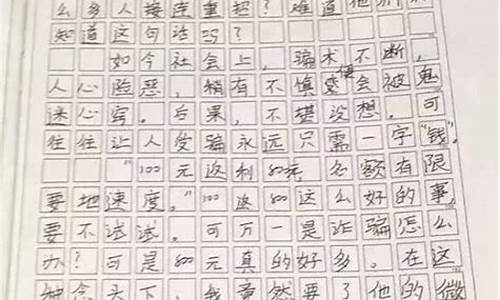 么多人接连重蹈？难道他们不
知道这句话吗？
如今社会上，骗术不断，
人心险恶，稍有不慎便会被鬼
迷心窍。后果，不堪没想。可
往往让人受骗永远只需一字“钱”。
“100元返利800元，名额有限
要地速度。”100返800这么好的事，
要不试试。可万一是诈骗怎么
办？可是800元真的好多。在这
种念头下，我竟然要了他的微